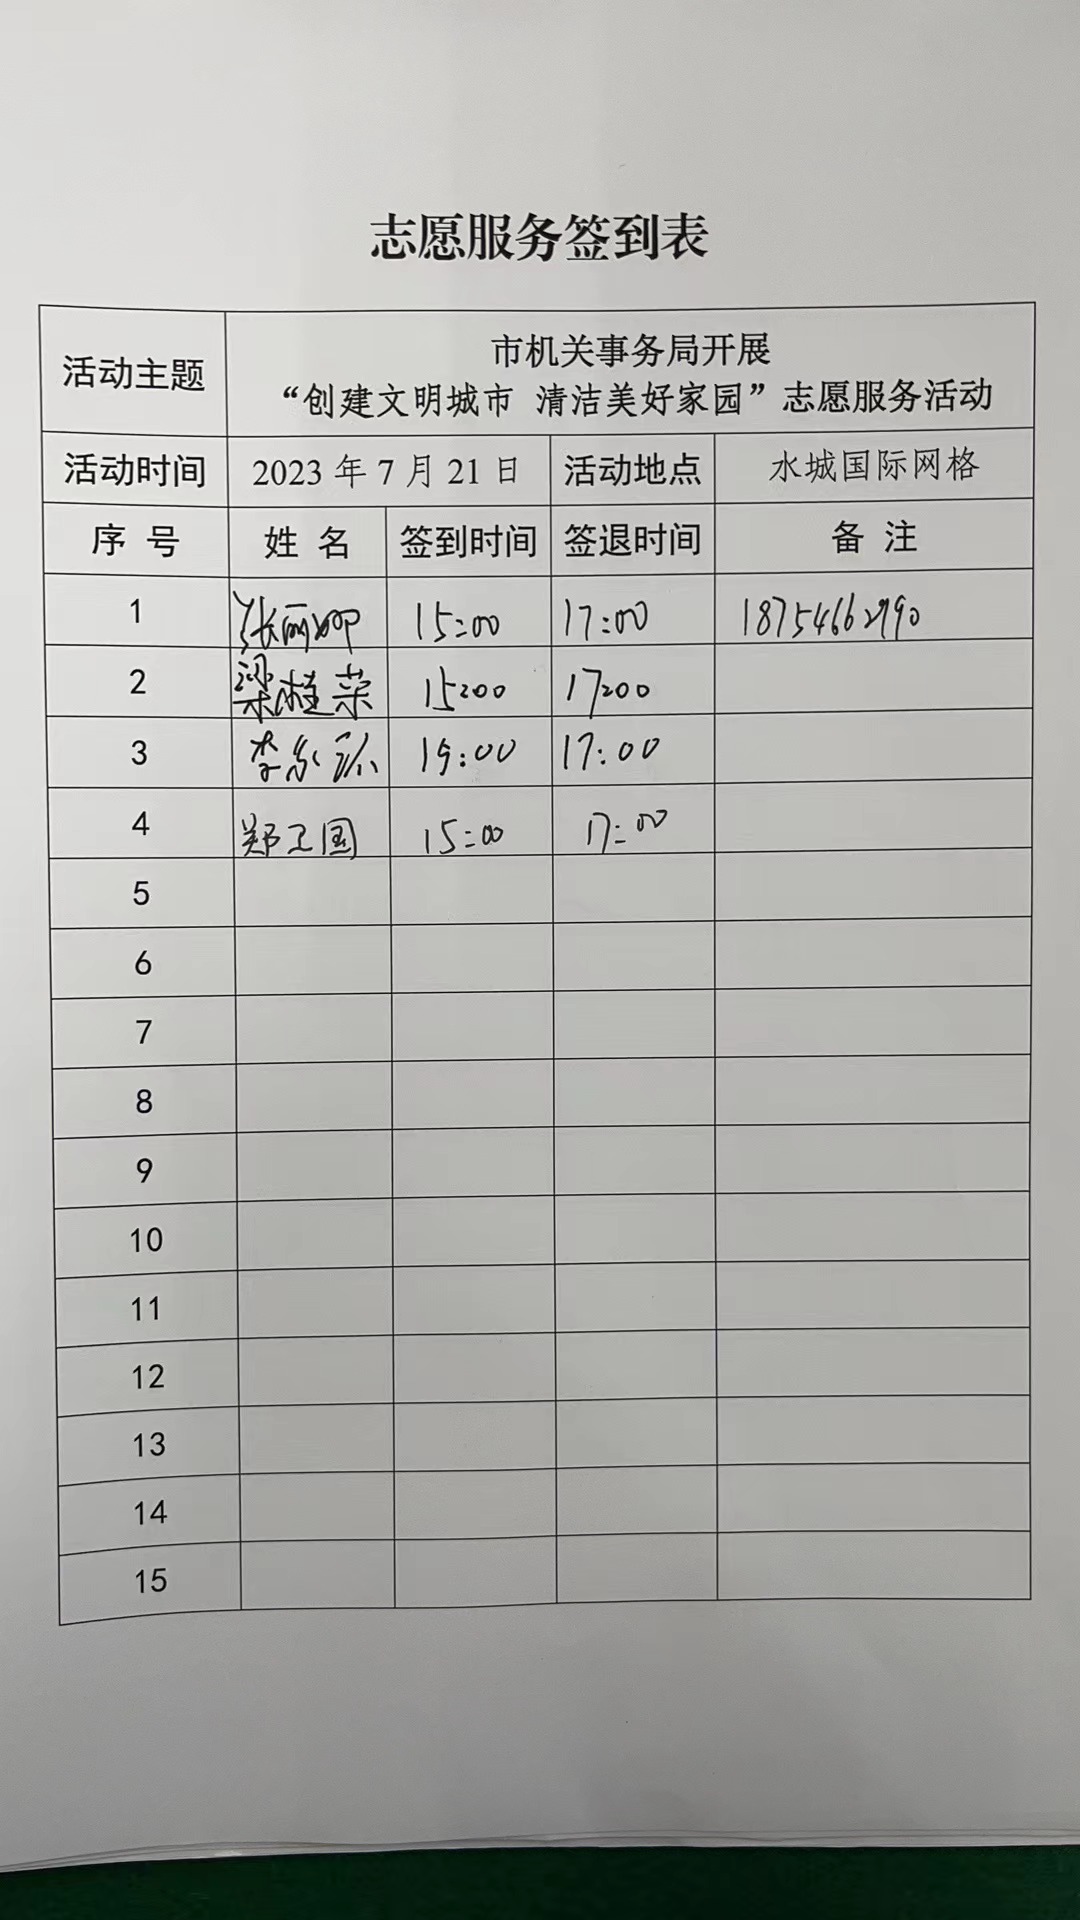 志愿服务签到表
活动主题
市机关事务局开展
“创建文明城市 清洁美好家园”志愿服务活动
活动时间 2023年7月21日 活动地点 水城国际网格
序 号 姓 名 签到时间 签退时间 备 注
1 张丽娜 15:00 17:00 18754662990
2 梁桂荣 15:00 17:00
3 李 15:00 17:00
4 郑卫国 15:00 17:00
5
6
7
8
9
10
11
12
13
14
15